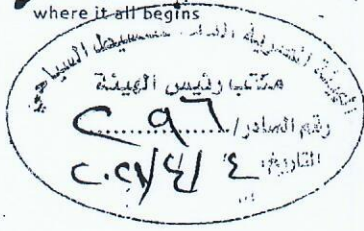 where it all begins
الهيئة المصرية العامة للتنشيط السياحي
مكتب رئيس الهيئة
رقم الصادر/ ٢٩٦
التاريخ: ٤/٤/٢٠٢١